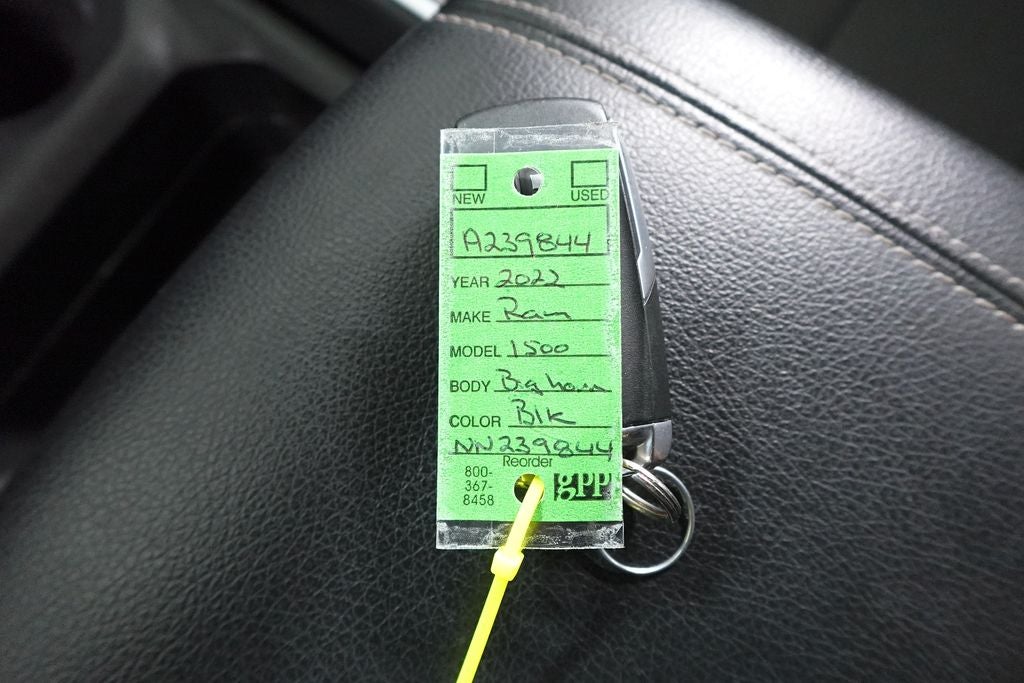 NEW USED
A239844
YEAR 2022
MAKE Ram
MODEL 1500
BODY Big horn
COLOR Blk
NN239844
Reorder
800-
367-
8458
gpp